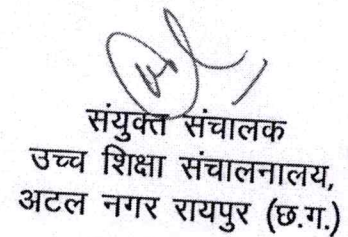 संयुक्त संचालक
उच्च शिक्षा संचालनालय,
अटल नगर रायपुर (छ.ग.)